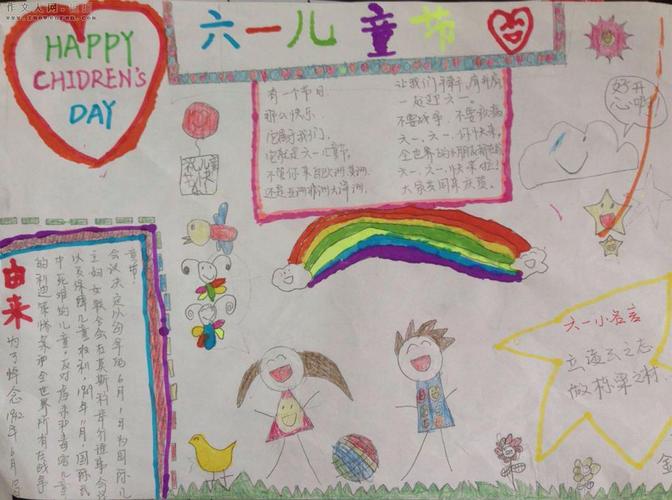 HAPPY
CHIDREN'S
DAY
六一儿童节
有一个节日
那么快乐,
它属于我们,
它就是六一儿童节.
不管你来自欧洲美洲
还是亚洲非洲大洋洲,
让我们手牵手,肩并肩
一起迎六一.
不要战争,不要疾病
六一,六一,你快来,
全世界的小朋友都在
六一,六一,快来啦!
大家共同来庆贺.
好开
心啊!
由来
为了悼念1942年6月
的利迪策惨案和全世界所有在战争
中死难的儿童,反对虐杀和毒害儿童
以及保障儿童权利,1949年11月,国际民
主妇女联合会在莫斯科举行理事会议
会议决定以每年的6月1日为国际儿
童节.
六一小名言
立凌云之志
做栋梁之材
金